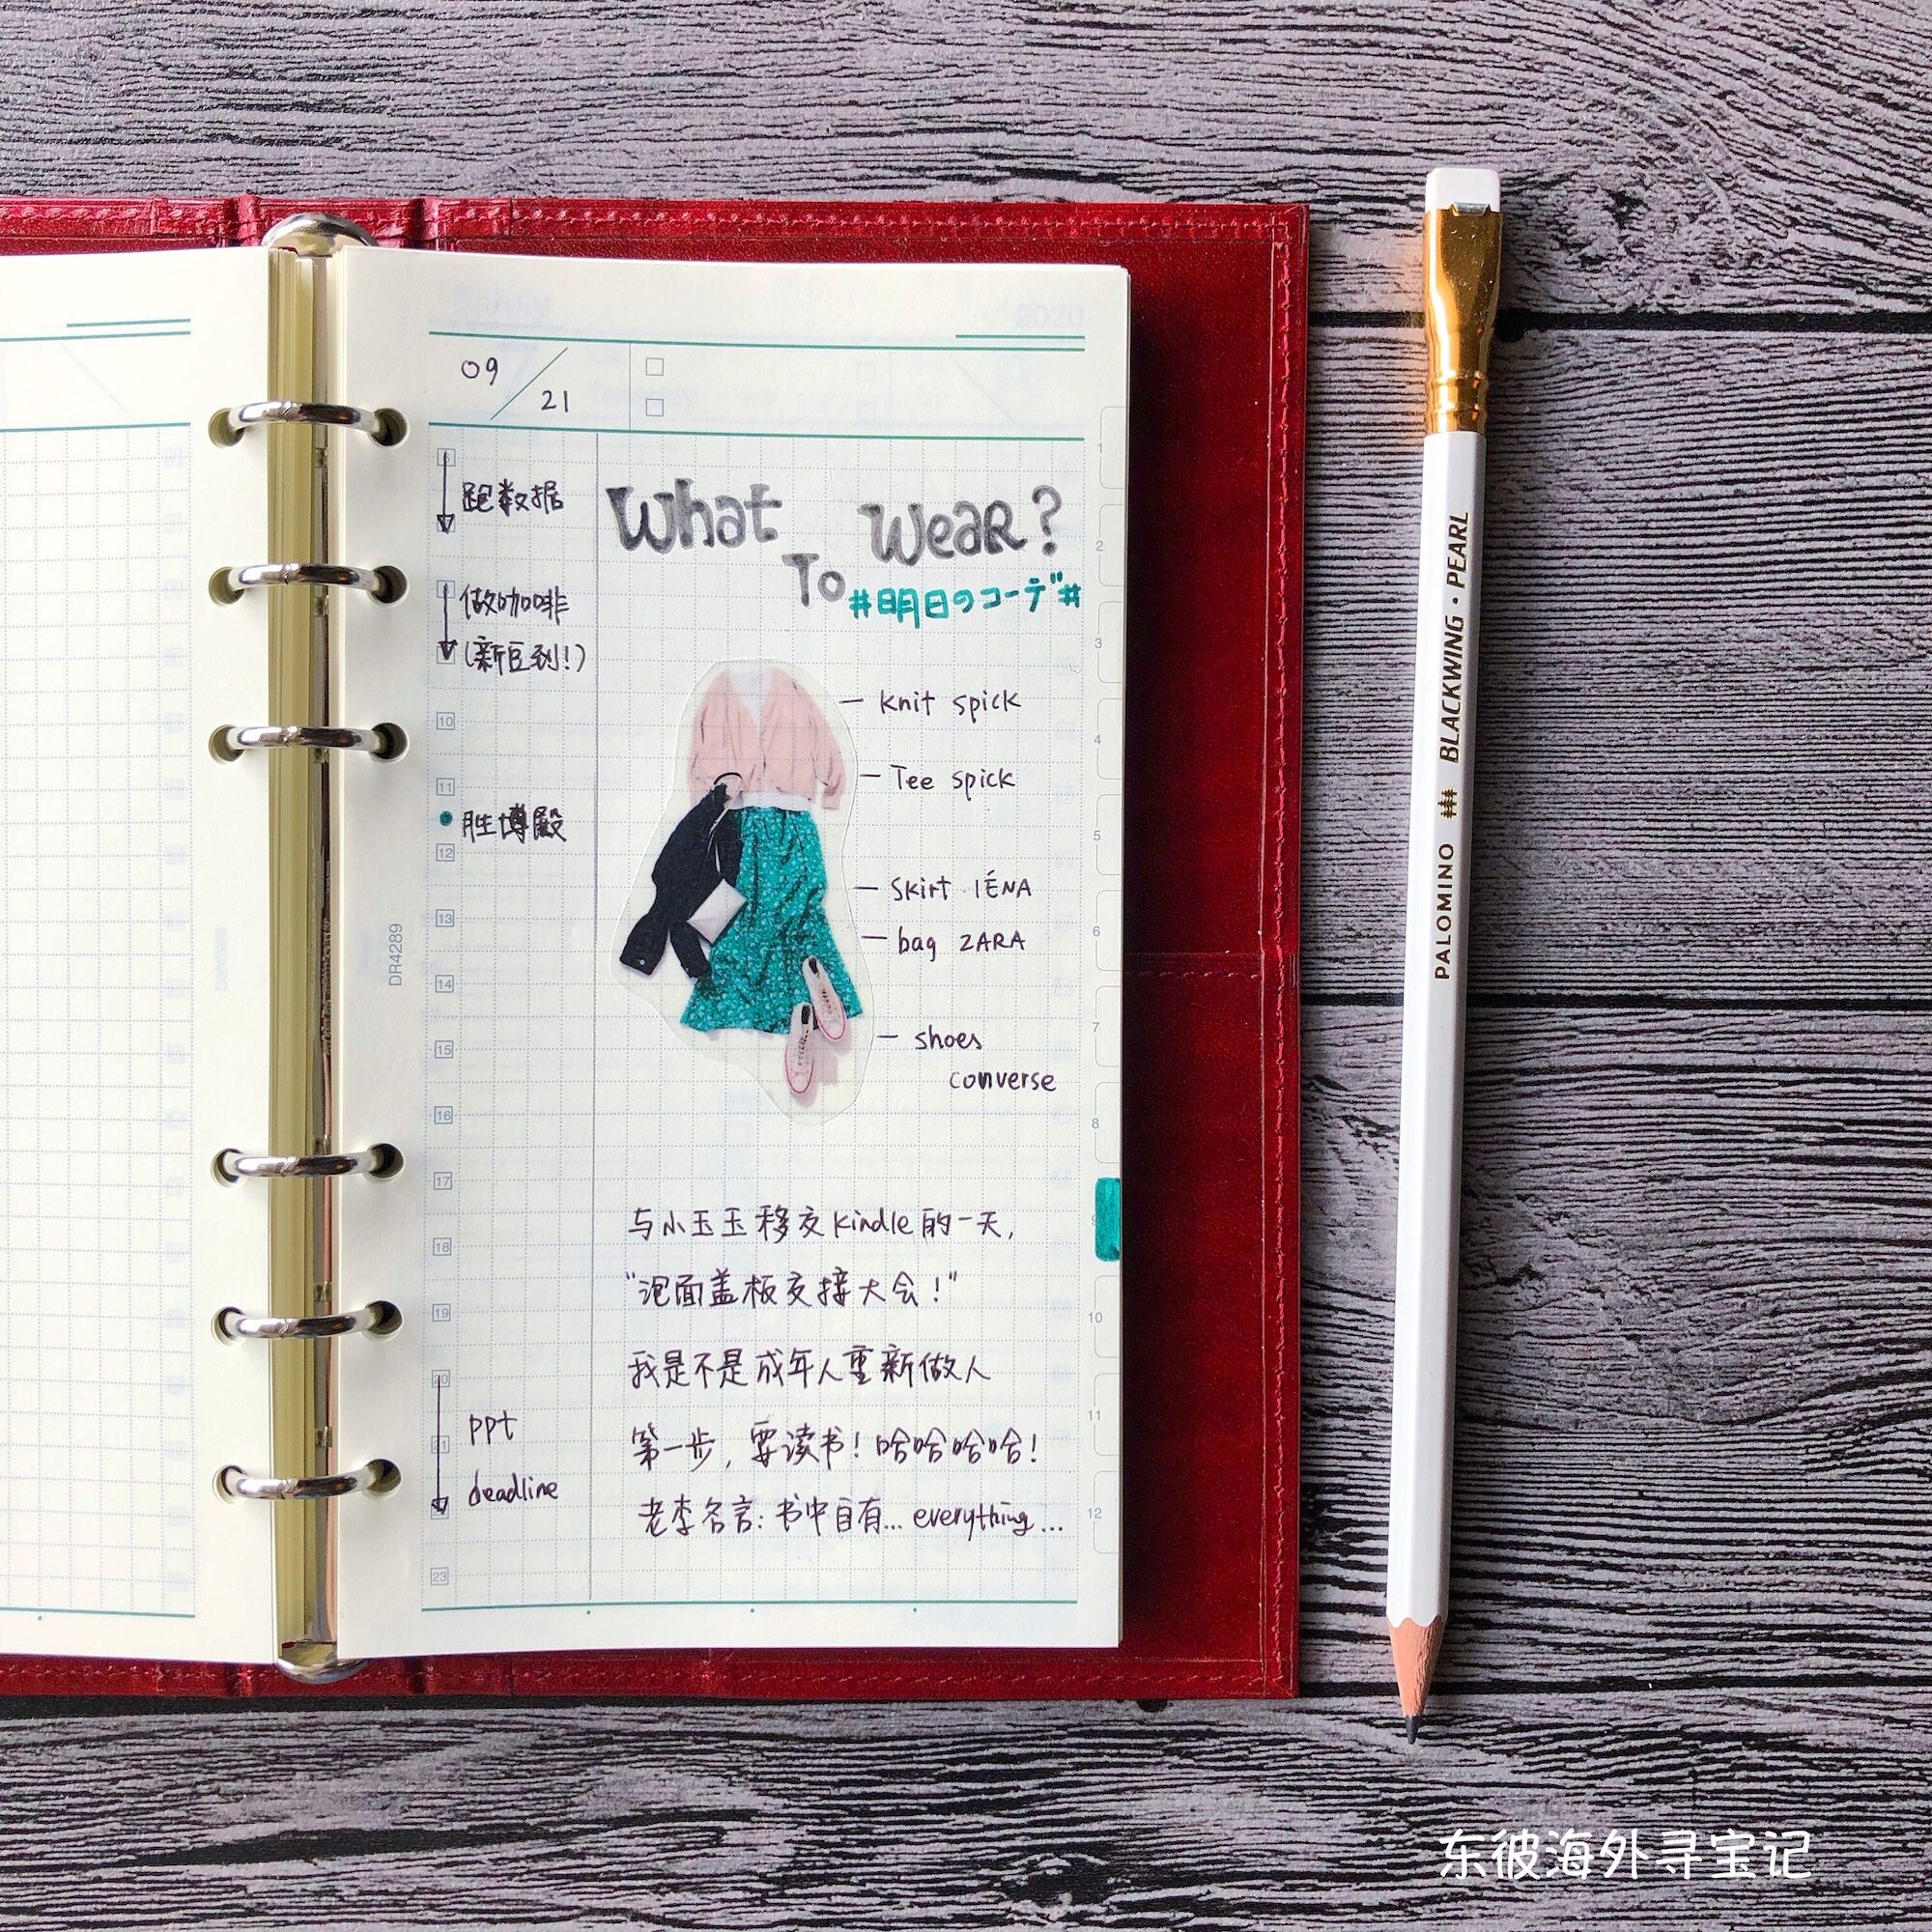 2020
09
21
跑数据
做咖啡
(新豆到!)
10
11
胜博殿
12
13
14
15
16
17
18
19
20
21
ppt
deadline
23
DR4289
What
To
Wear?
#明日のコーデ#
knit spick
Tee spick
skirt IÉNA
bag ZARA
shoes
converse
与小玉玉移交kindle的一天,
"泡面盖板交接大会!"
我是不是成年人重新做人
第一步,要读书!哈哈哈哈!
老李名言:书中自有...everything...
1
2
3
4
5
6
7
8
10
11
12
PALOMINO BLACKWING • PEARL
东彼海外寻宝记